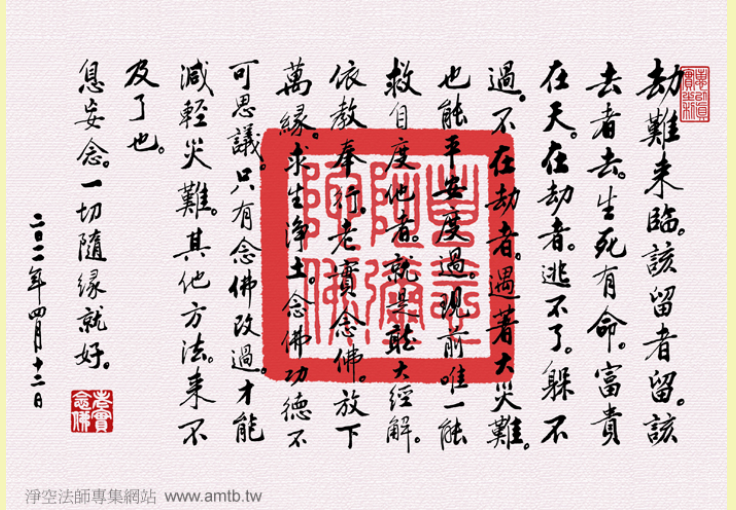 惠以真
實之利
劫難来臨。該留者留。該
去者去。生死有命。富貴
在天。在劫者。逃不了。躲不
過。不在劫者。遇著大災難。
也能平安度過。現前唯一能
救自度他者。就是大經解。
依教奉行。老實念佛。放下
萬緣。求生淨土。念佛功德不
可思議。只有念佛改過。才能
減輕災難。其他方法。来不
及了也。
息妄念。一切隨緣就好。
二〇一一年四月十二日
老實
念佛
南無
阿彌
陀佛
淨空法師專集網站 www.amtb.tw